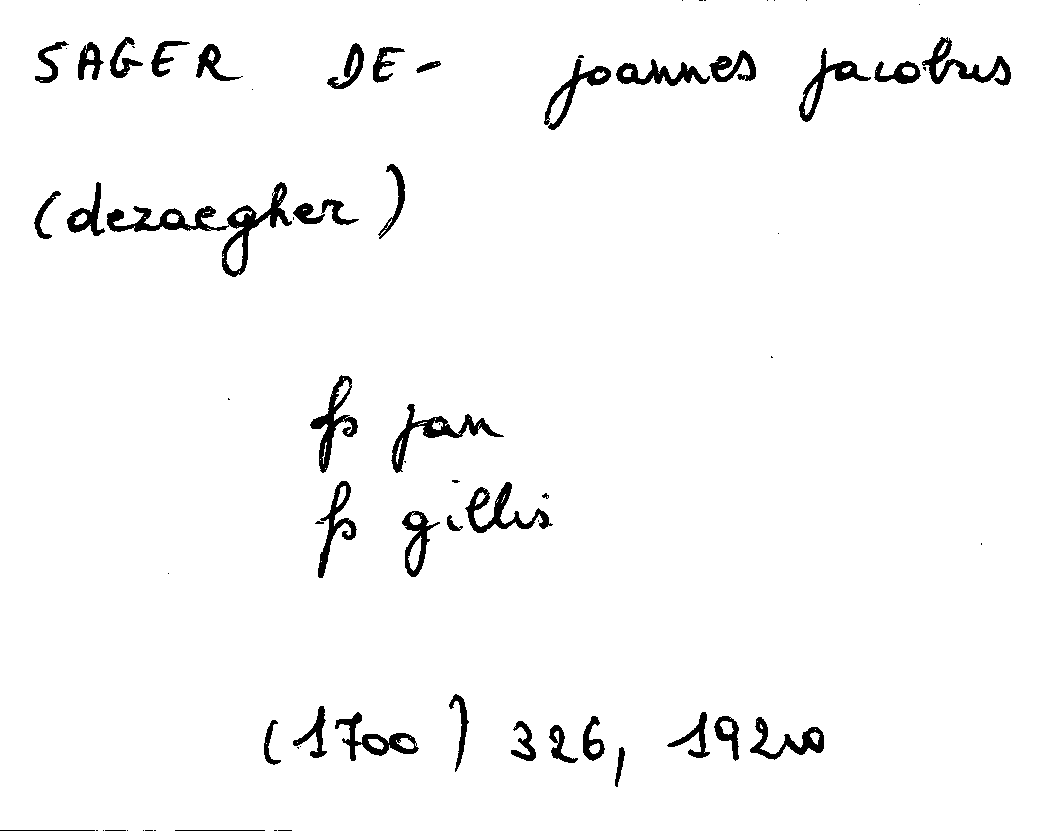 SAGER DE- joannes jacobus
(dezaegher)
fs jan
fs gillis
(1700) 326, 192vo